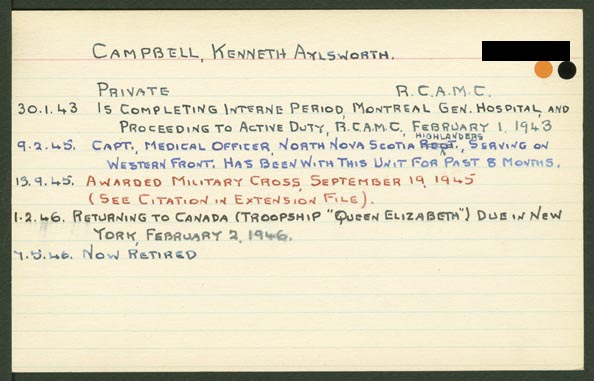 CAMPBELL, KENNETH AYLSWORTH.
PRIVATE R.C.A.M.C.
30.1.43 IS COMPLETING INTERNE PERIOD, MONTREAL GEN. HOSPITAL, AND
PROCEEDING TO ACTIVE DUTY, R.C.A.M.C, FEBRUARY 1, 1943
9.2.45. CAPT., MEDICAL OFFICER, NORTH NOVA SCOTIA HIGHLANDERS REGT., SERVING ON
WESTERN FRONT. HAS BEEN WITH THIS UNIT FOR PAST 8 MONTHS.
19.9.45. AWARDED MILITARY CROSS, SEPTEMBER 19, 1945
(SEE CITATION IN EXTENSION FILE).
1.2.46. RETURNING TO CANADA (TROOPSHIP "QUEEN ELIZABETH") DUE IN NEW
YORK, FEBRUARY 2, 1946.
7.5.46. NOW RETIRED